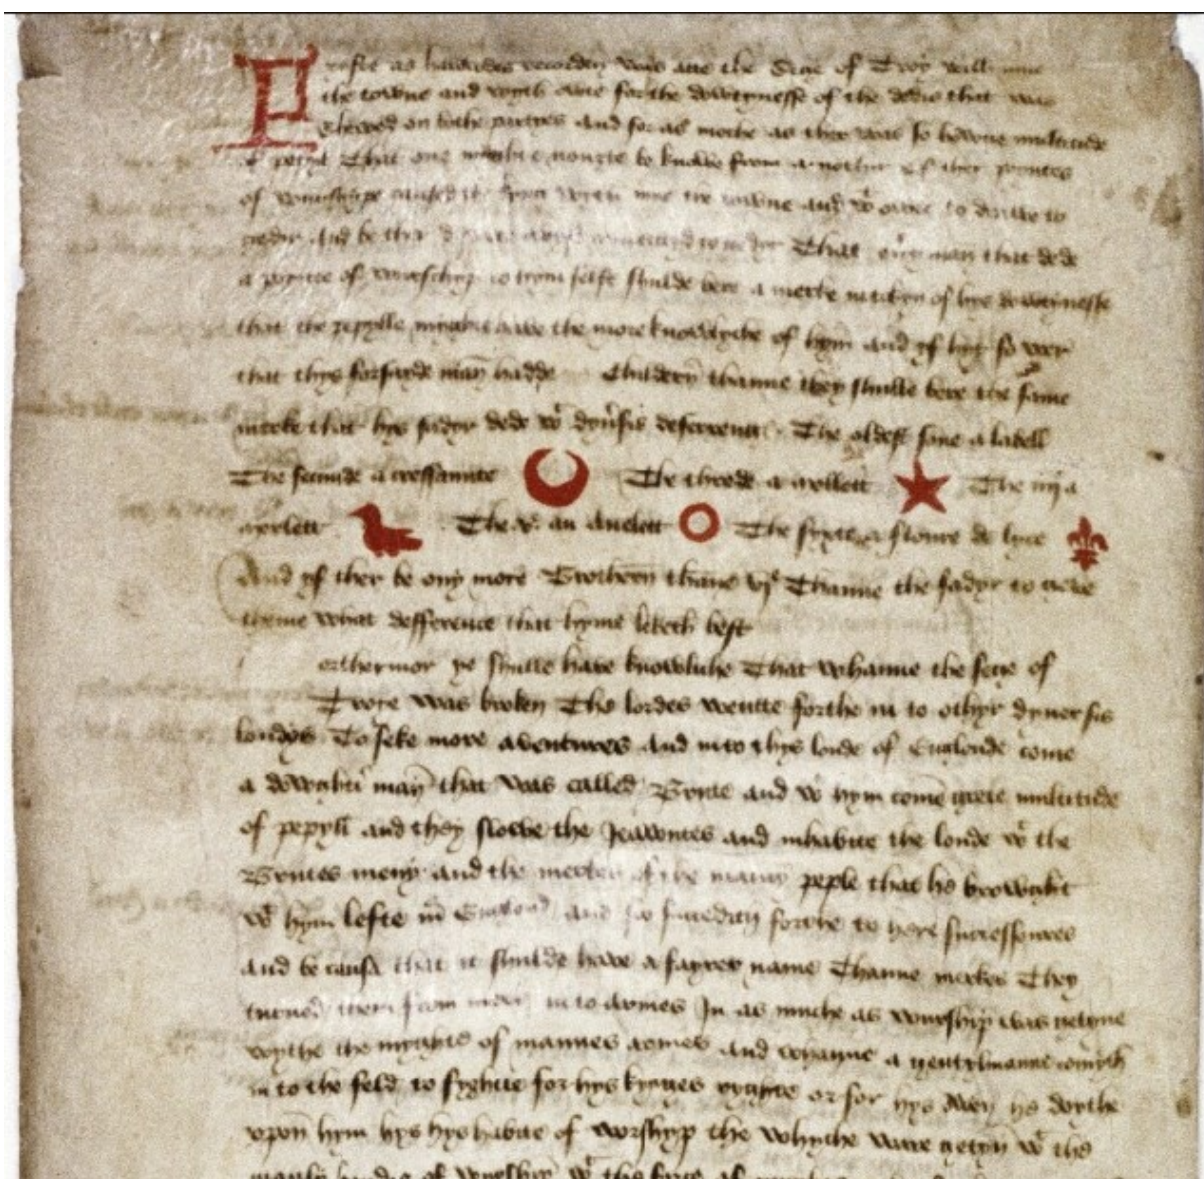 Firste as hawrodes recorden was atte the Sege of Troy with inne
the towne and wyth owte for the dowtynesse of the dedis that was
shewed on bothe partyes and for as moche as ther was so howne multitude
of pepyll That one myght nouzte be knowe from a nother of ther poyntes
of wourshype caused the with inne the towne and wt owte to
to gedyr And be ther to gedyr That euy man that dede
a poynte of worschyp to hym selfe shulde bere a merke in tokyn of hys dowtynesse
that the pepylle myght have the more knowlyche of hym and yf hyt so wer
that thys forsayde man hadde Childern thanne they shulle bere the same
merke that hys fadyr dede wt dyusis defferentt The oldest sone a labell
The secunde a cressaunte The thrydde a mollett The iiij a
merlett The v. an Anelett The syxte a floure de lyce
And yf ther be ony more Brothern thanne vj Thanne the fadyr to geve
theme what defference that hyme leketh best
orthermor ye shulle have knowliche That whanne the sege of
Troye was broken The lordes wentte forthe in to othyr dyuersis
londys To seke more aventures And in to thys londe of Englonde come
a dowghti man that was called Brute and wt hym come grete multitude
of pepyll and they slowe the Jeawntes and inhabite the londe wt the
Brutes meny and the merkes of the many peple that he browght
wt hym lefte in Englond and so forthe to here successoures
And be cause that it shulde have a fayrer name Thanne merkes They
turned them from merkes in to Armes In as muche as wurship was getyne
wythe the myghte of mannes armes And whanne a gentylmanne comyth
in to the feld to fyghtte for hys kynges ryghte or for hys Awen he doythe
upon hym hys habite of worshyp the whyche ware getyn wt the